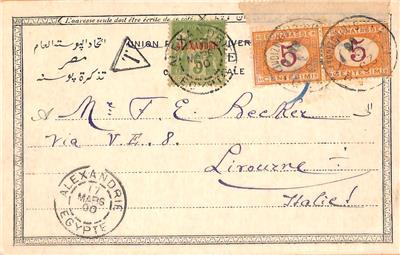 L'adresse seule doit être écrite de ce côté
UNION
اتحاد البوستة العام
مصر
تذكرة بوستة
T
ALEXANDRIE
5
CENTESIMI
5
CENTESIMI
A Mr F. E. Becker
Via V. E. 8.
Livourne
Italie!
ALEXANDRIE
17
MARS
00
EGYPTE